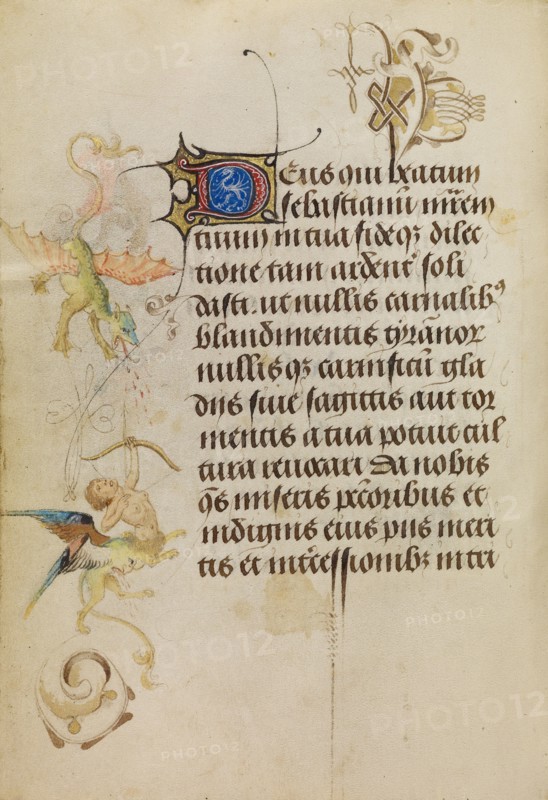 Deus qui beatum
sebastianū mr̄em
tuum in tua fide qꝫ dilec
tione tam ardent͛ soli
dasti. ut nullis carnalibꝰ
blandimentis tyrānor
nullis qꝫ carnificū gla
diis siue sagittis aut tor
mentis a tua potuit cul
tura reuocari Da nobis
qs̄ miseris pccōribus et
indignis eius piis meri
tis et intercessionibꝫ inter
PHOTO12